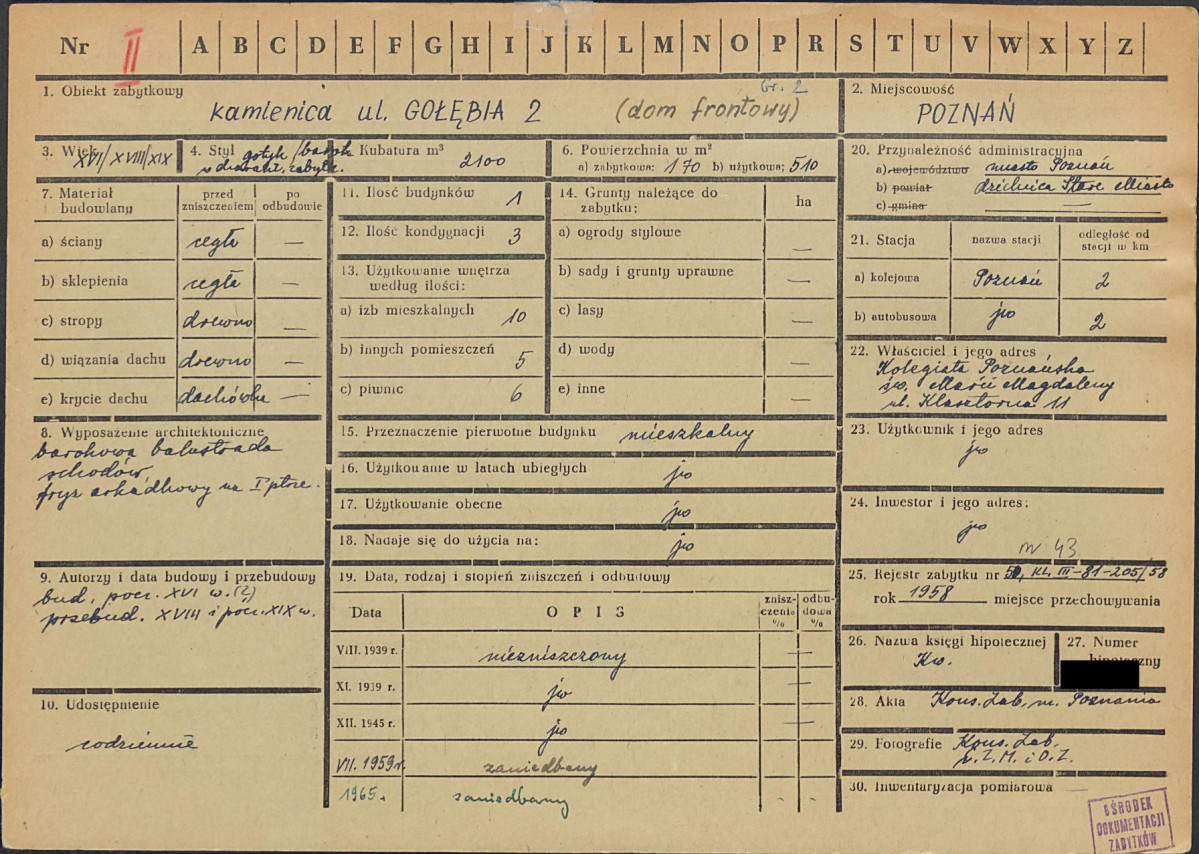 Nr II A B C D E F G H I J K L M N O P R S T U V W X Y Z
1. Obiekt zabytkowy
Gr. 2
kamienica ul. GOŁĘBIA 2 (dom frontowy)
2. Miejscowość
POZNAŃ
3. Wiek
XVI/XVIII/XIX
4. Styl gotyk/barok
Kubatura m³ 2100
6. Powierzchnia w m²
a) zabytkowa: 170 b) użytkowa: 510
20. Przynależność administracyjna
a) województwo miasto Poznań
b) powiat dzielnica Stare Miasto
c) gmina —
7. Materiał budowlany
przed zniszczeniem
po odbudowie
a) ściany cegła —
b) sklepienia cegła —
c) stropy drewno —
d) wiązania dachu drewno —
e) krycie dachu dachówka —
11. Ilość budynków 1
12. Ilość kondygnacji 3
13. Użytkowanie wnętrza
według ilości:
a) izb mieszkalnych 10
b) innych pomieszczeń 5
c) piwnic 6
14. Grunty należące do
zabytku:
ha
a) ogrody stylowe —
b) sady i grunty uprawne —
c) lasy —
d) wody —
e) inne —
21. Stacja
nazwa stacji
odległość od
stacji w km
a) kolejowa Poznań 2
b) autobusowa jw 2
22. Właściciel i jego adres
Kolegiata Poznańska
św. Marii Magdaleny
ul. Klasztorna 11
8. Wyposażenie architektoniczne
barokowa balustrada
schodów,
fryz arkadkowy na I ptrze.
15. Przeznaczenie pierwotne budynku mieszkalny
16. Użytkowanie w latach ubiegłych jw
17. Użytkowanie obecne jw
18. Nadaje się do użycia na: jw
23. Użytkownik i jego adres
jw
24. Inwestor i jego adres:
jw
nr 43
9. Autorzy i data budowy i przebudowy
bud. pocz. XVI w. (?)
przebud. XVIII i pocz. XIX w.
19. Data, rodzaj i stopień zniszczeń i odbudowy
Data
OPIS
zniszczenia %
odbudowa %
VIII. 1939 r. niezniszczony —
XI. 1939 r. jw —
XII. 1945 r. jw —
VII. 1959 r. zaniedbany
1965 r. zaniedbany - -
25. Rejestr zabytku nr KL. III-81-205/58
rok 1958 miejsce przechowywania
26. Nazwa księgi hipotecznej
Kw.
27. Numer
hipoteczny
10. Udostępnienie
codziennie
28. Akta Kons. Zab. m. Poznania
29. Fotografie Kons. Zab.
Z. M. i O. Z.
30. Inwentaryzacja pomiarowa —
OŚRODEK
DOKUMENTACJI
ZABYTKÓW